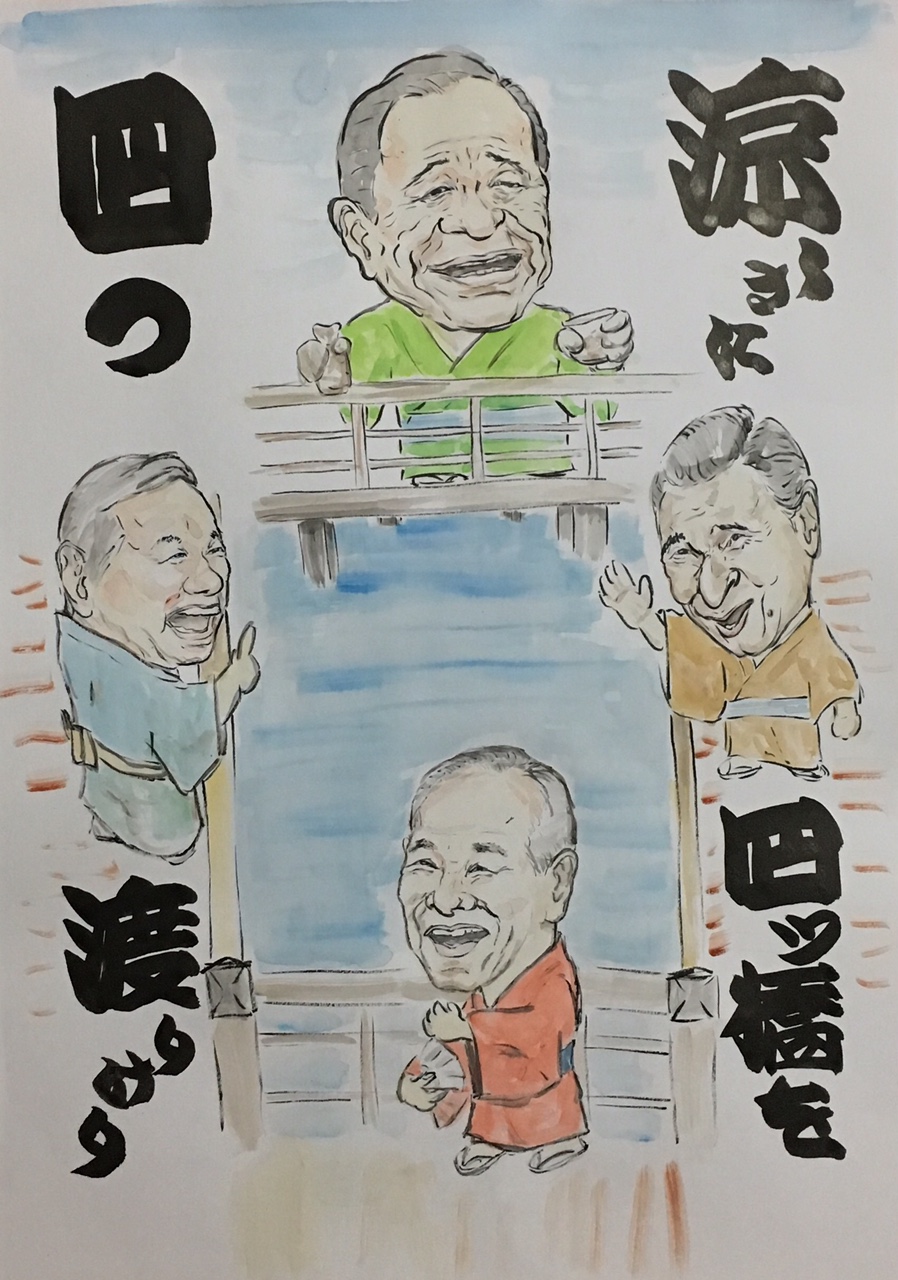 涼しさに
四ツ橋を
四つ
渡りけり